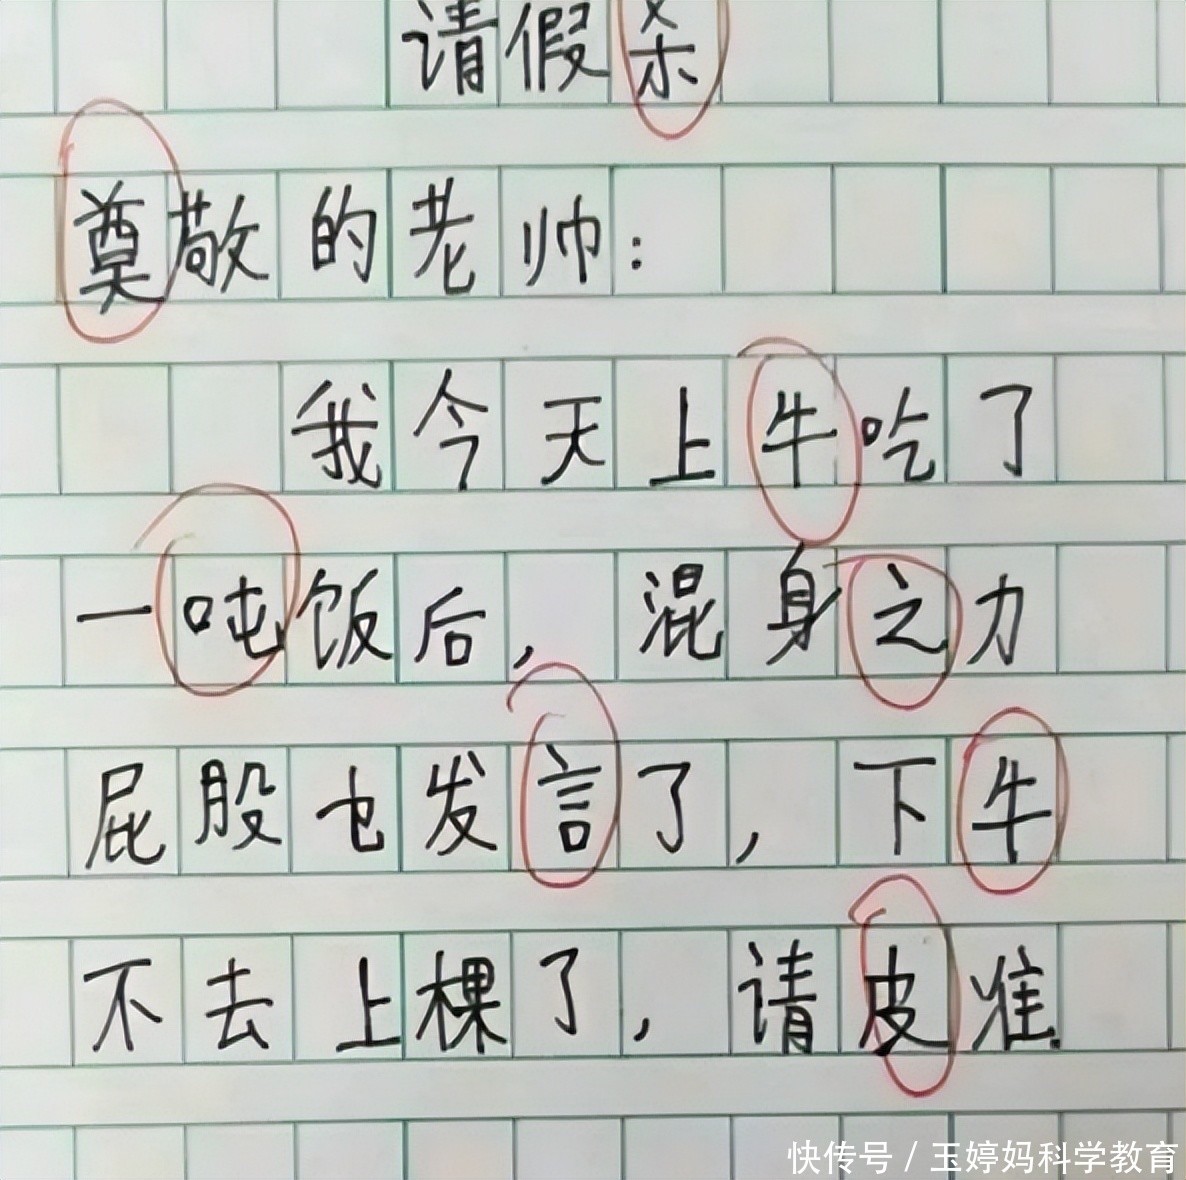 请假杀
奠敬的老帅：
我今天上牛吃了
一吨饭后，混身之力
屁股也发言了，下牛
不去上棵了，请皮准.
快传号/玉婷妈科学教育